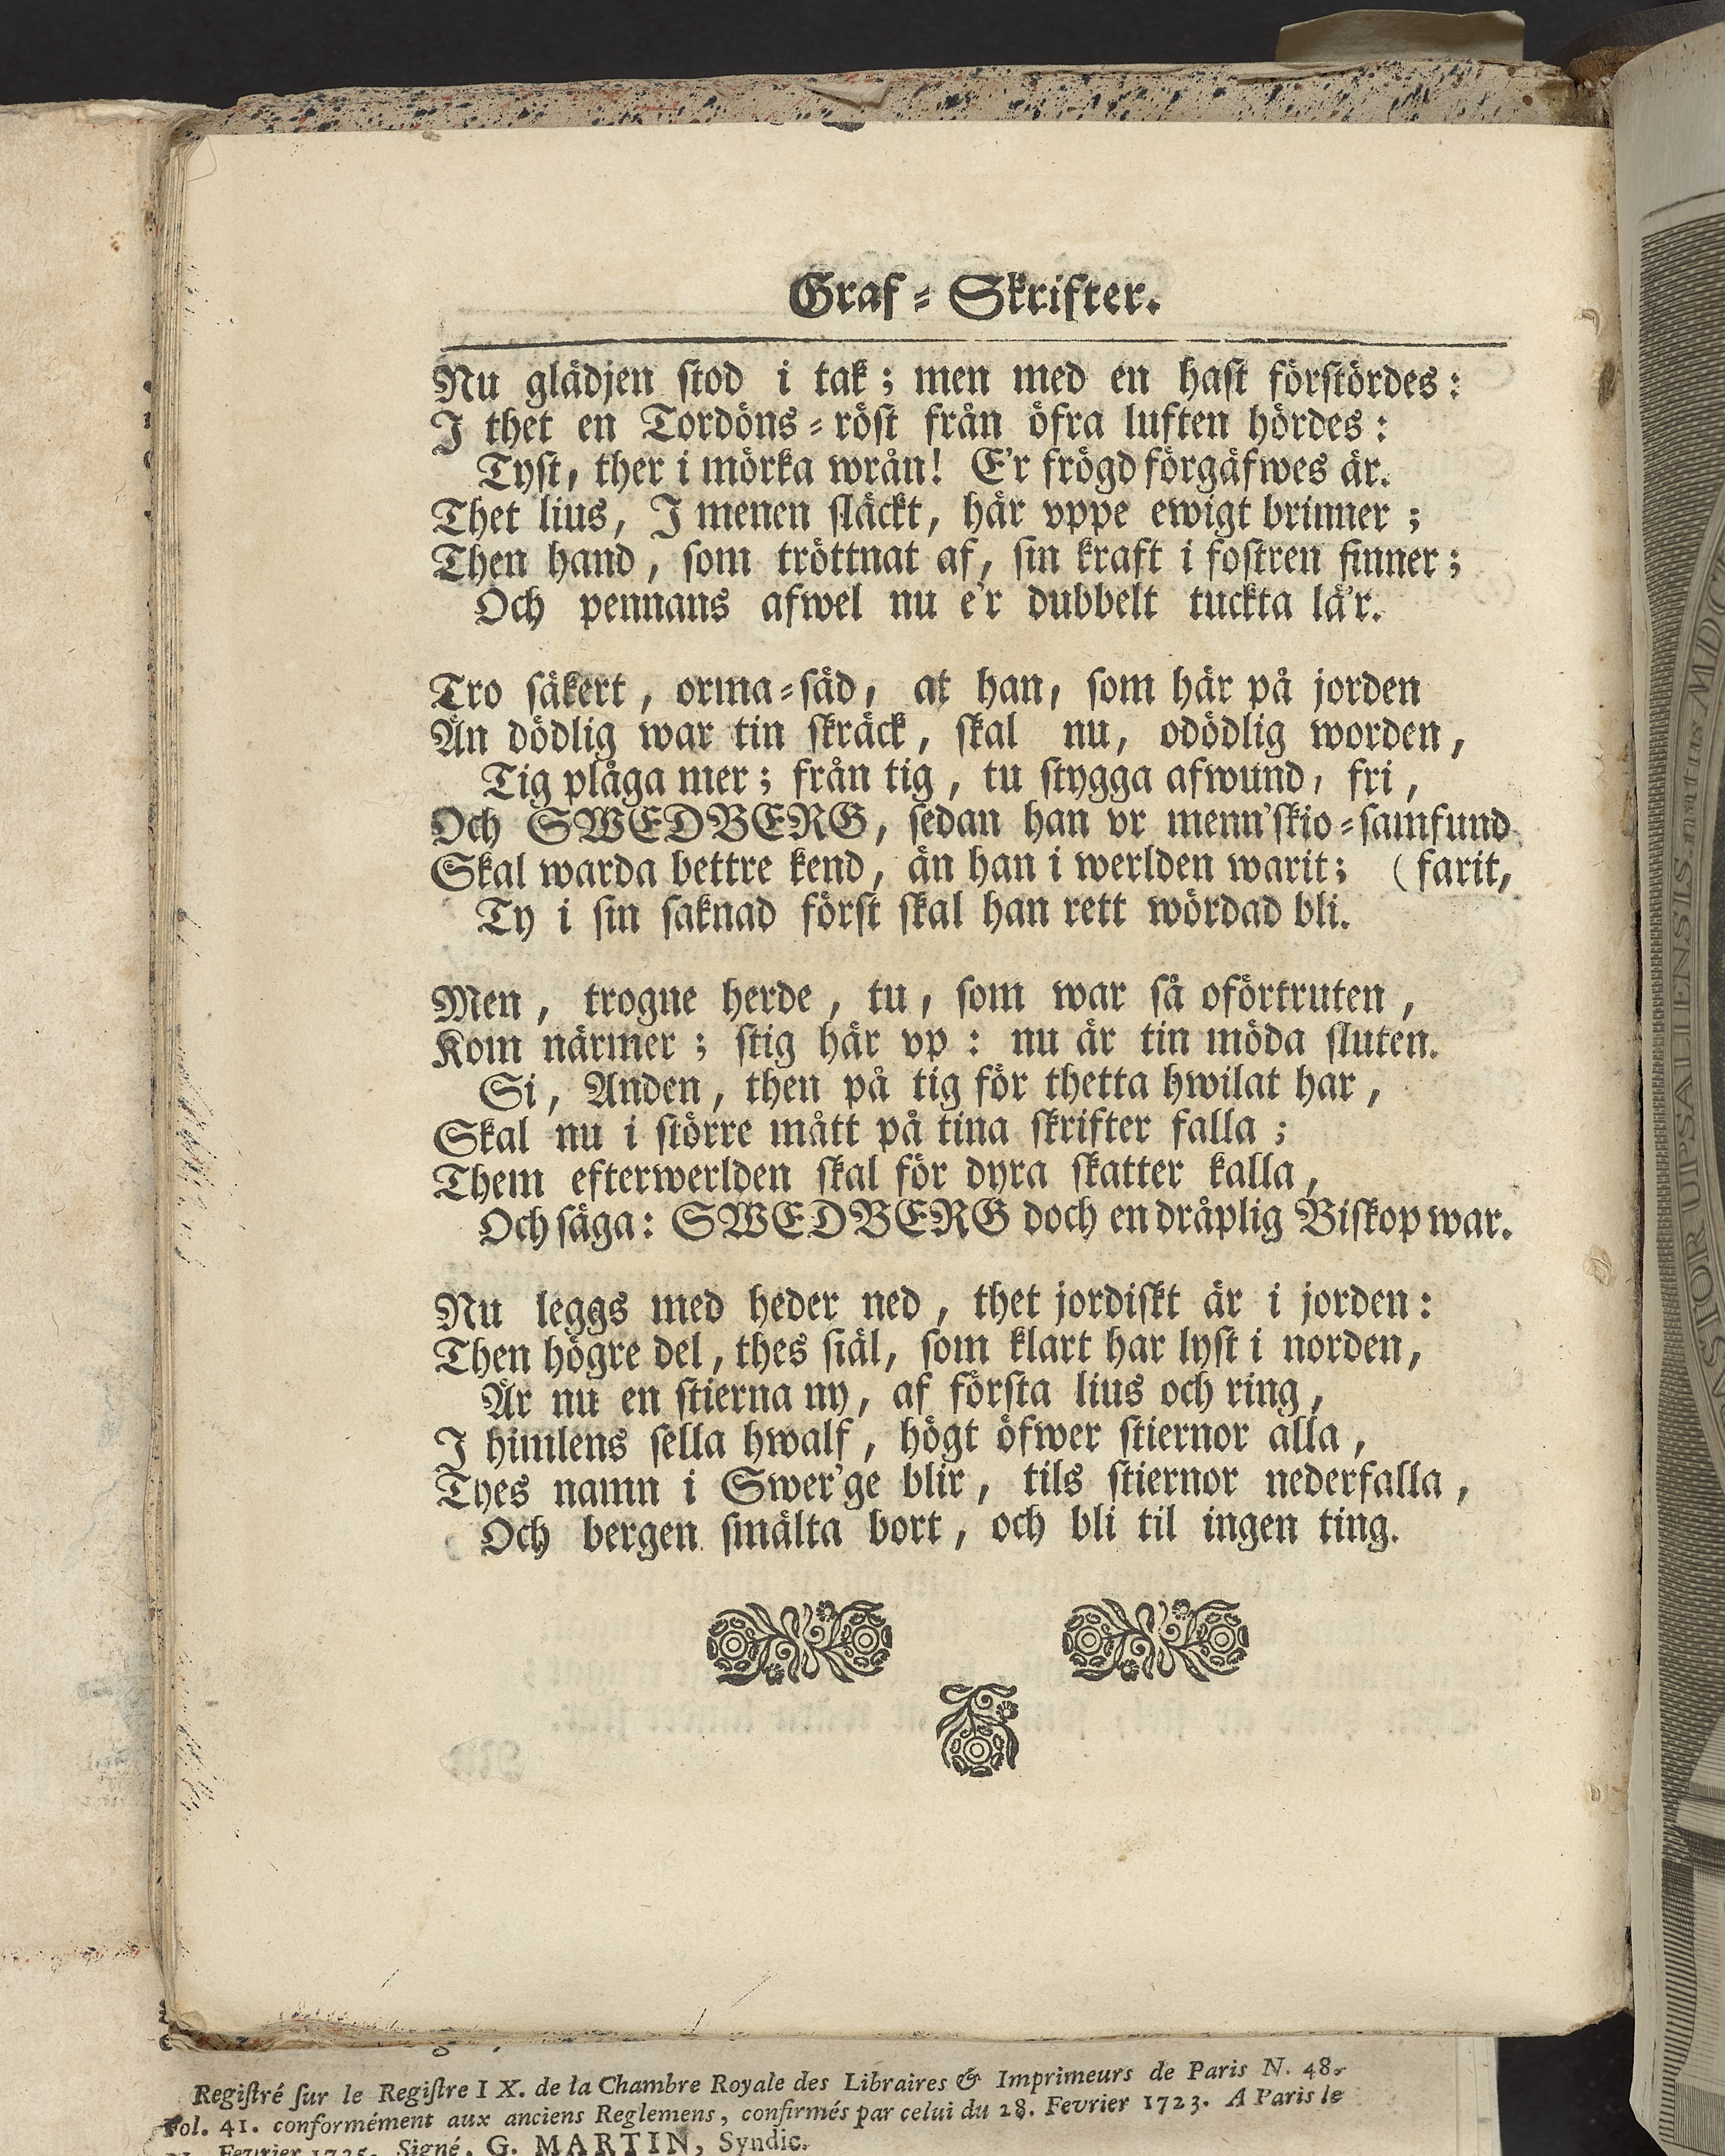 Graf-Skrifter.
Nu glädjen stod i tak; men med en hast förstördes:
I thet en Tordöns-röst från öfra luften hördes:
Tyst, ther i mörka wrån! E'r frögd förgäfwes är.
Thet lius, I menen släckt, här vppe ewigt brinner;
Then hand, som tröttnat af, sin kraft i fostren finner;
Och pennans afwel nu e'r dubbelt tuckta lä'r.
Tro säkert, orma-säd, at han, som här på jorden
Än dödlig war tin skräck, skal nu, odödlig worden,
Tig plåga mer; från tig, tu stygga afwund, fri,
Och SWEDBERG, sedan han vr menn'skio-samfund
Skal warda bettre kend, än han i werlden warit; (farit,
Ty i sin saknad först skal han rett wördad bli.
Men, trogne herde, tu, som war så oförtruten,
Kom närmer; stig här vp: nu är tin möda sluten.
Si, Anden, then på tig för thetta hwilat har,
Skal nu i större mått på tina skrifter falla;
Them efterwerlden skal för dyra skatter kalla,
Och säga: SWEDBERG doch en dråplig Biskop war.
Nu leggs med heder ned, thet jordiskt är i jorden:
Then högre del, thes siäl, som klart har lyst i norden,
Är nu en stierna ny, af första lius och ring,
I himlens sella hwalf, högt öfwer stiernor alla,
Tyes namn i Swer'ge blir, tils stiernor nederfalla,
Och bergen smälta bort, och bli til ingen ting.
Registré sur le Registre IX. de la Chambre Royale des Libraires & Imprimeurs de Paris N. 48.
Fol. 41. conformément aux anciens Reglemens, confirmés par celui du 28. Fevrier 1723. A Paris le
Fevrier 1725. Signé, G. MARTIN, Syndic.
PASTOR UPSALIENSIS